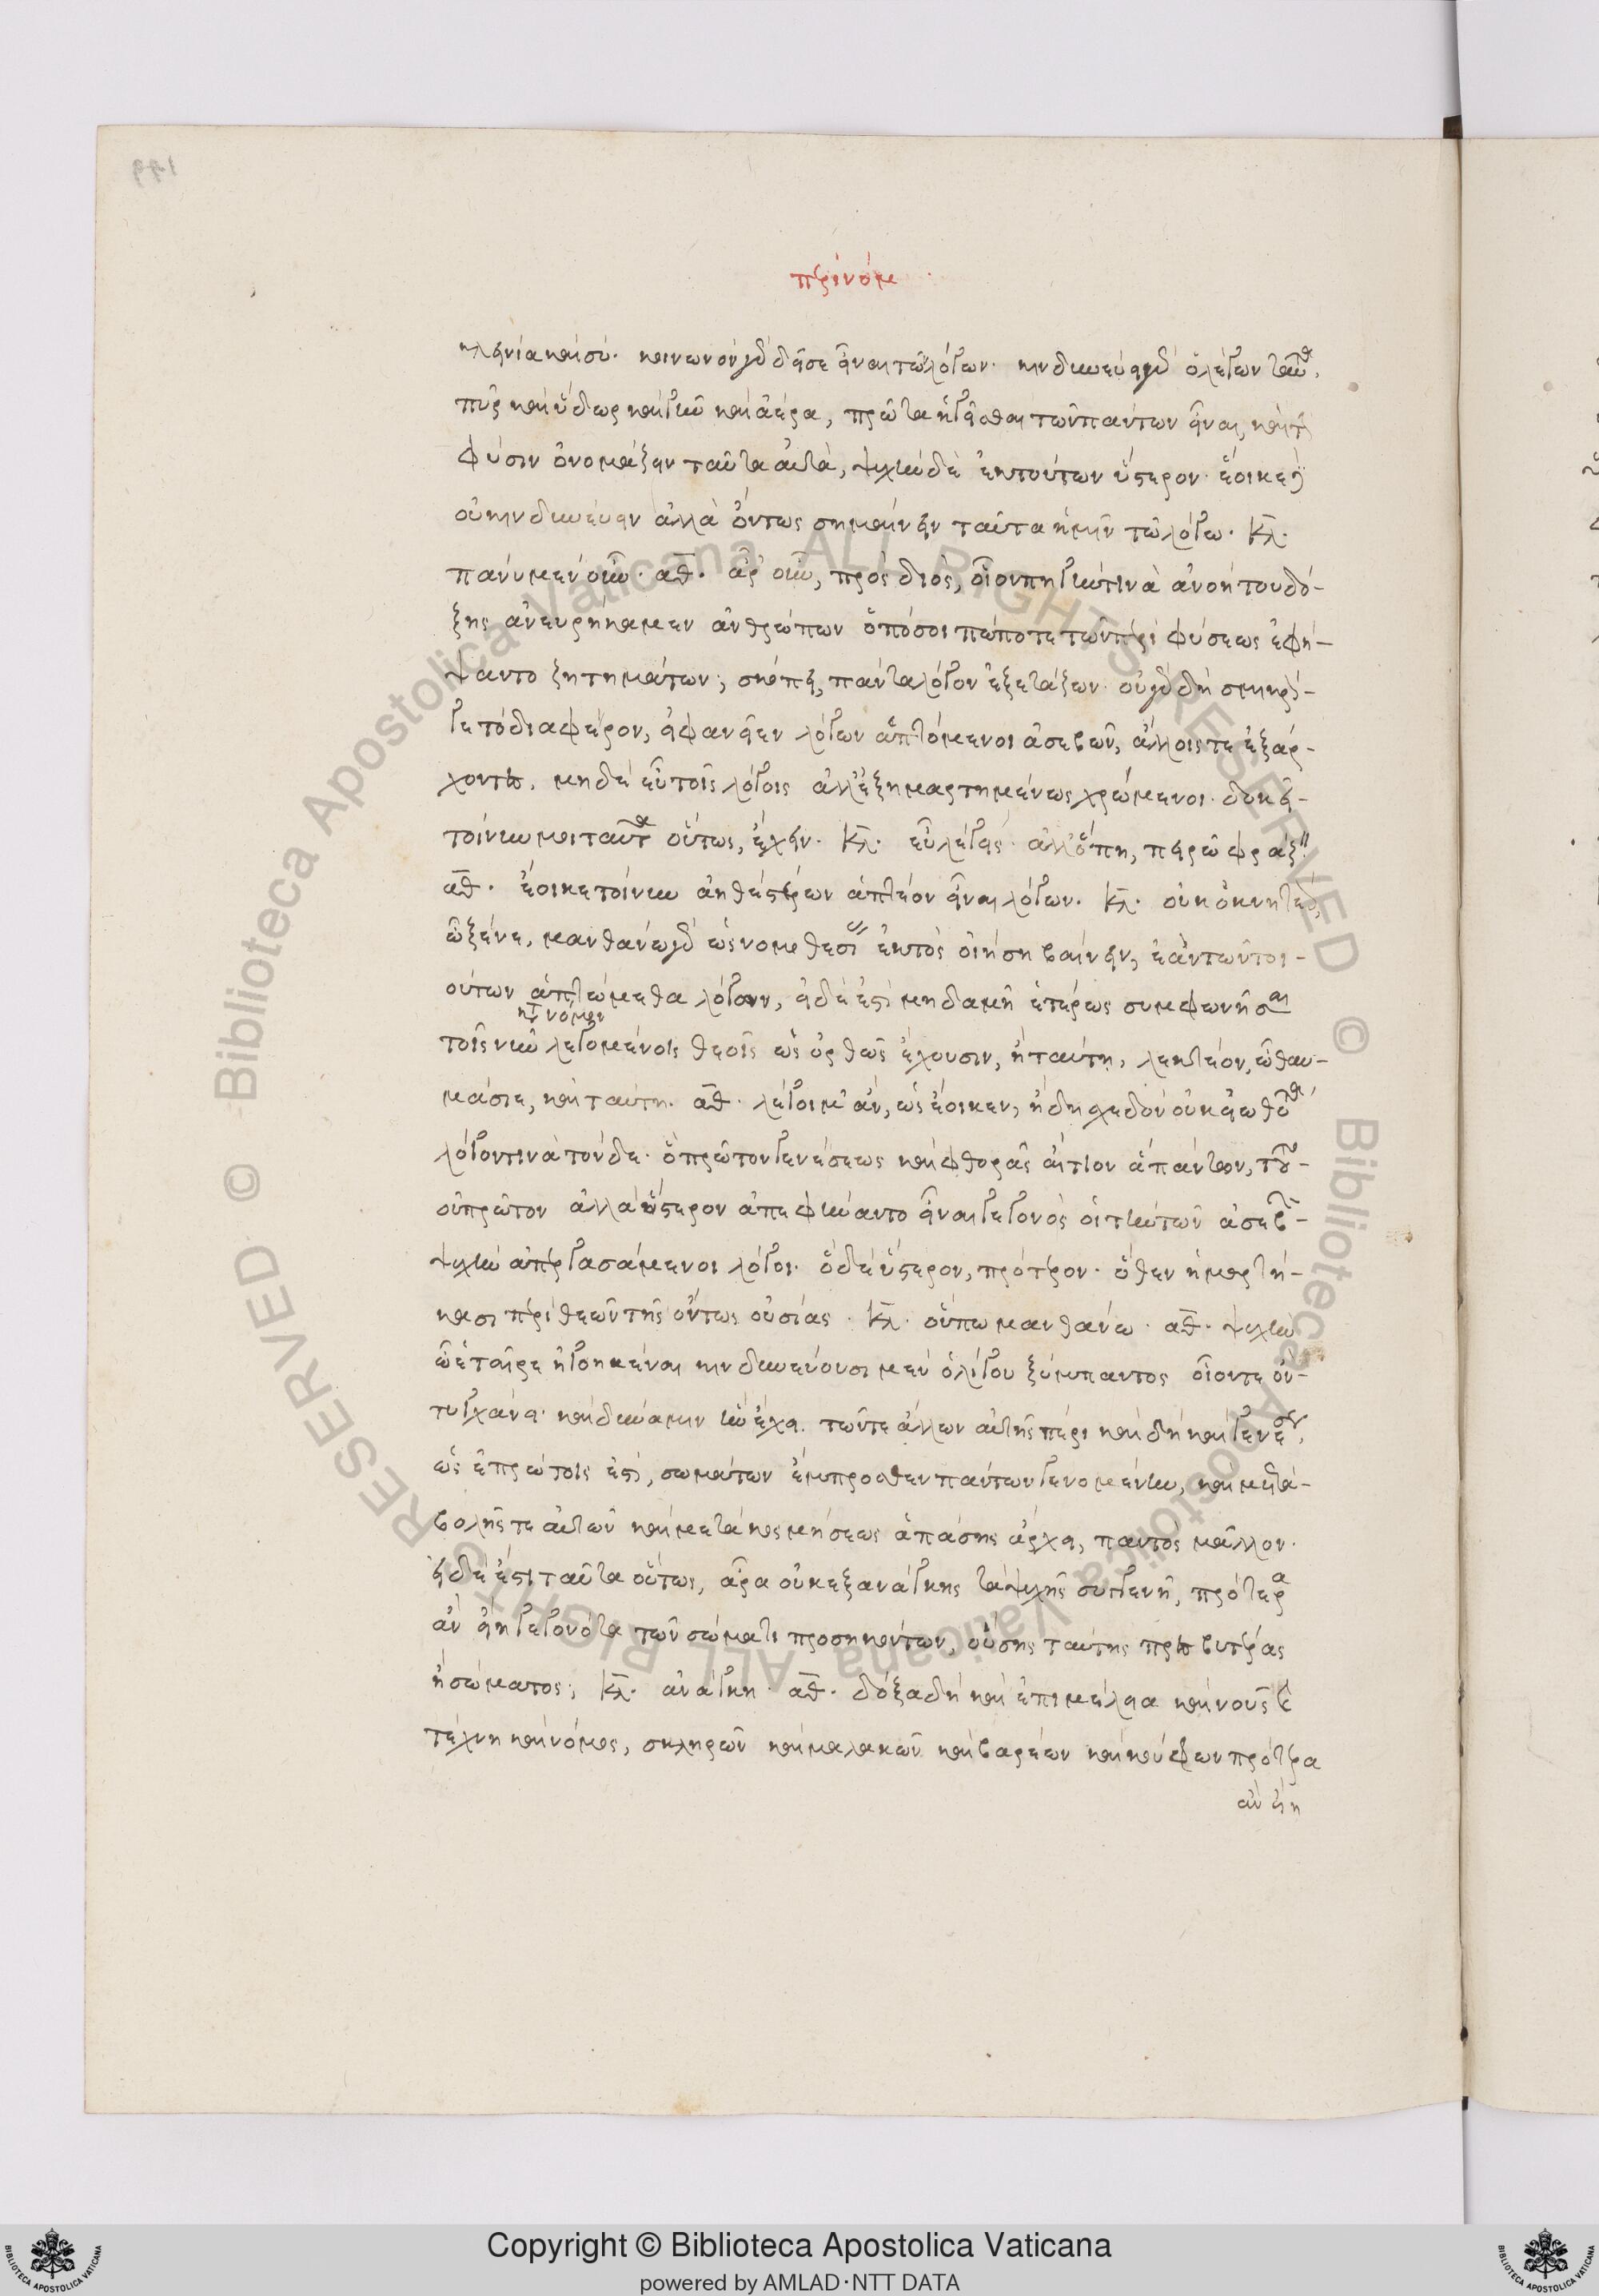 περὶ νόμ
κλεινία καὶ σύ· κοινωνὸν γὰρ δεῖ σε εἶναι τῶν λόγων· κινδυνεύει γὰρ ὁ λέγων ταῦτα,
πῦρ καὶ ὕδωρ καὶ γῆν καὶ ἀέρα, πρῶτα ἡγεῖσθαι τῶν πάντων εἶναι, καὶ τὴν
φύσιν ὀνομάζειν ταῦτα αὐτὰ, ψυχὴν δὲ ἐκ τούτων ὕστερον· ἔοικε δὲ
οὐ κινδυνεύειν ἀλλὰ ὄντως σημαίνειν ταῦτα ἡμῖν τῶ λόγω· κλ.
πάνυ μὲν οὖν· αθ. ἆρ' οὖν, πρὸς διὸς, οἷον πηγήν τινα ἀνοήτου δό-
ξης ἀνευρήκαμεν ἀνθρώπων ὁπόσοι πώποτε τῶν περὶ φύσεως ἐφή-
ψαντο ζητημάτων; σκόπει, πάντα λόγον ἐξετάζων· οὐ γὰρ δὴ σμικρόν
γε τὸ διαφέρον, εἰ φανεῖεν λόγων ἁπτόμενοι ἀσεβῶν, ἄλλοις τε ἐξάρ-
χοντες, μηδὲ εὖ τοῖς λόγοις ἀλλ' ἐξημαρτημένως χρώμενοι· δοκεῖ
τοίνυν μοι ταῦτα οὕτως, ἔχειν· κλ. εὖ λέγεις· ἀλλ' ὅπη, πειρῶ φράζειν
αθ. ἔοικε τοίνυν ἀηθεστέρων ἁπτέον εἶναι λόγων. κλ. οὐκ ὀκνητέον,
ὦ ξένε, μανθάνω γὰρ ὡς νομοθεσίας ἐκτὸς οἰήση βαίνειν, ἐὰν τῶν τοι-
ούτων ἁπτώμεθα λόγων, εἰ δὲ ἔστι μηδαμῆ ἑτέρως συμφωνῆσαι
τοῖς νῦν λεγομένοις θεοῖς ὡς ὀρθῶς ἔχουσιν, ἢ ταύτη, λεκτέον, ὦ θαυ-
μάσιε, καὶ ταύτη. αθ. λέγοιμ' ἂν, ὡς ἔοικεν, ἤδη σχεδὸν οὐκ εἰωθότα
λόγον τινὰ τόνδε· ὃ πρῶτον γενέσεως καὶ φθορᾶς αἴτιον ἁπάντων, τοῦτο
οὐ πρῶτον ἀλλὰ ὕστερον ἀπεφήναντο εἶναι γεγονὸς οἱ τὴν τῶν ἀσεβῶν
ψυχὴν ἀπεργασάμενοι λόγοι· ὃ δὲ ὕστερον, πρότερον· ὅθεν ἡμαρτή-
κασι περὶ θεῶν τῆς ὄντως οὐσίας· κλ. οὔπω μανθάνω· αθ. ψυχὴν
ὦ ἑταῖρε ἠγνοηκέναι κινδυνεύουσι μὲν ὀλίγου ξύμπαντος οἷόν τε ὂν
τυγχάνει· καὶ δύναμιν ἣν ἔχει. τῶν τε ἄλλων αὐτῆς πέρι καὶ δὴ καὶ γενέσεως,
ὡς ἐν πρώτοις ἐστὶ, σωμάτων ἔμπροσθεν πάντων γενομένη, καὶ μετα-
βολῆς τε αὐτῶν καὶ μετακοσμήσεως ἁπάσης ἄρχει, παντὸς μᾶλλον.
εἰ δὲ ἔστι ταῦτα οὕτως, ἆρα οὐκ ἐξ ἀνάγκης τὰ ψυχῆς συγγενῆ, πρότερα
ἂν εἴη γεγονότα τῶν σώματι προσηκόντων, οὔσης ταύτης πρεσβυτέρας
ἢ σώματος; κλ. ἀνάγκη· αθ. δόξα δὴ καὶ ἐπιμέλεια καὶ νοῦς καὶ
τέχνη καὶ νόμος, σκληρῶν καὶ μαλακῶν καὶ βαρέων καὶ κούφων πρότερα
ἂν εἴη